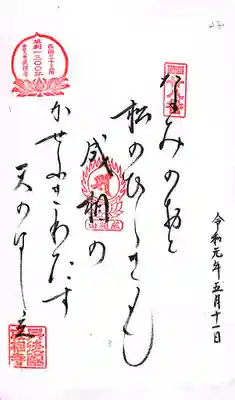 令和元年五月十一日
なみのおと
松のひゞきも
成相の
かせふきわたす
天のはし立
西国三十三所
草創一三〇〇年
丹後國
成相寺